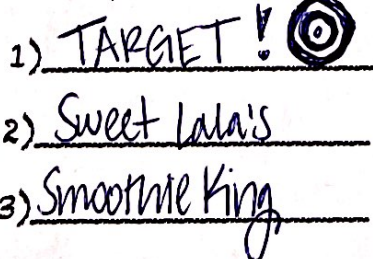 1) TARGET!
2) Sweet Lala's
3) Smoothie King